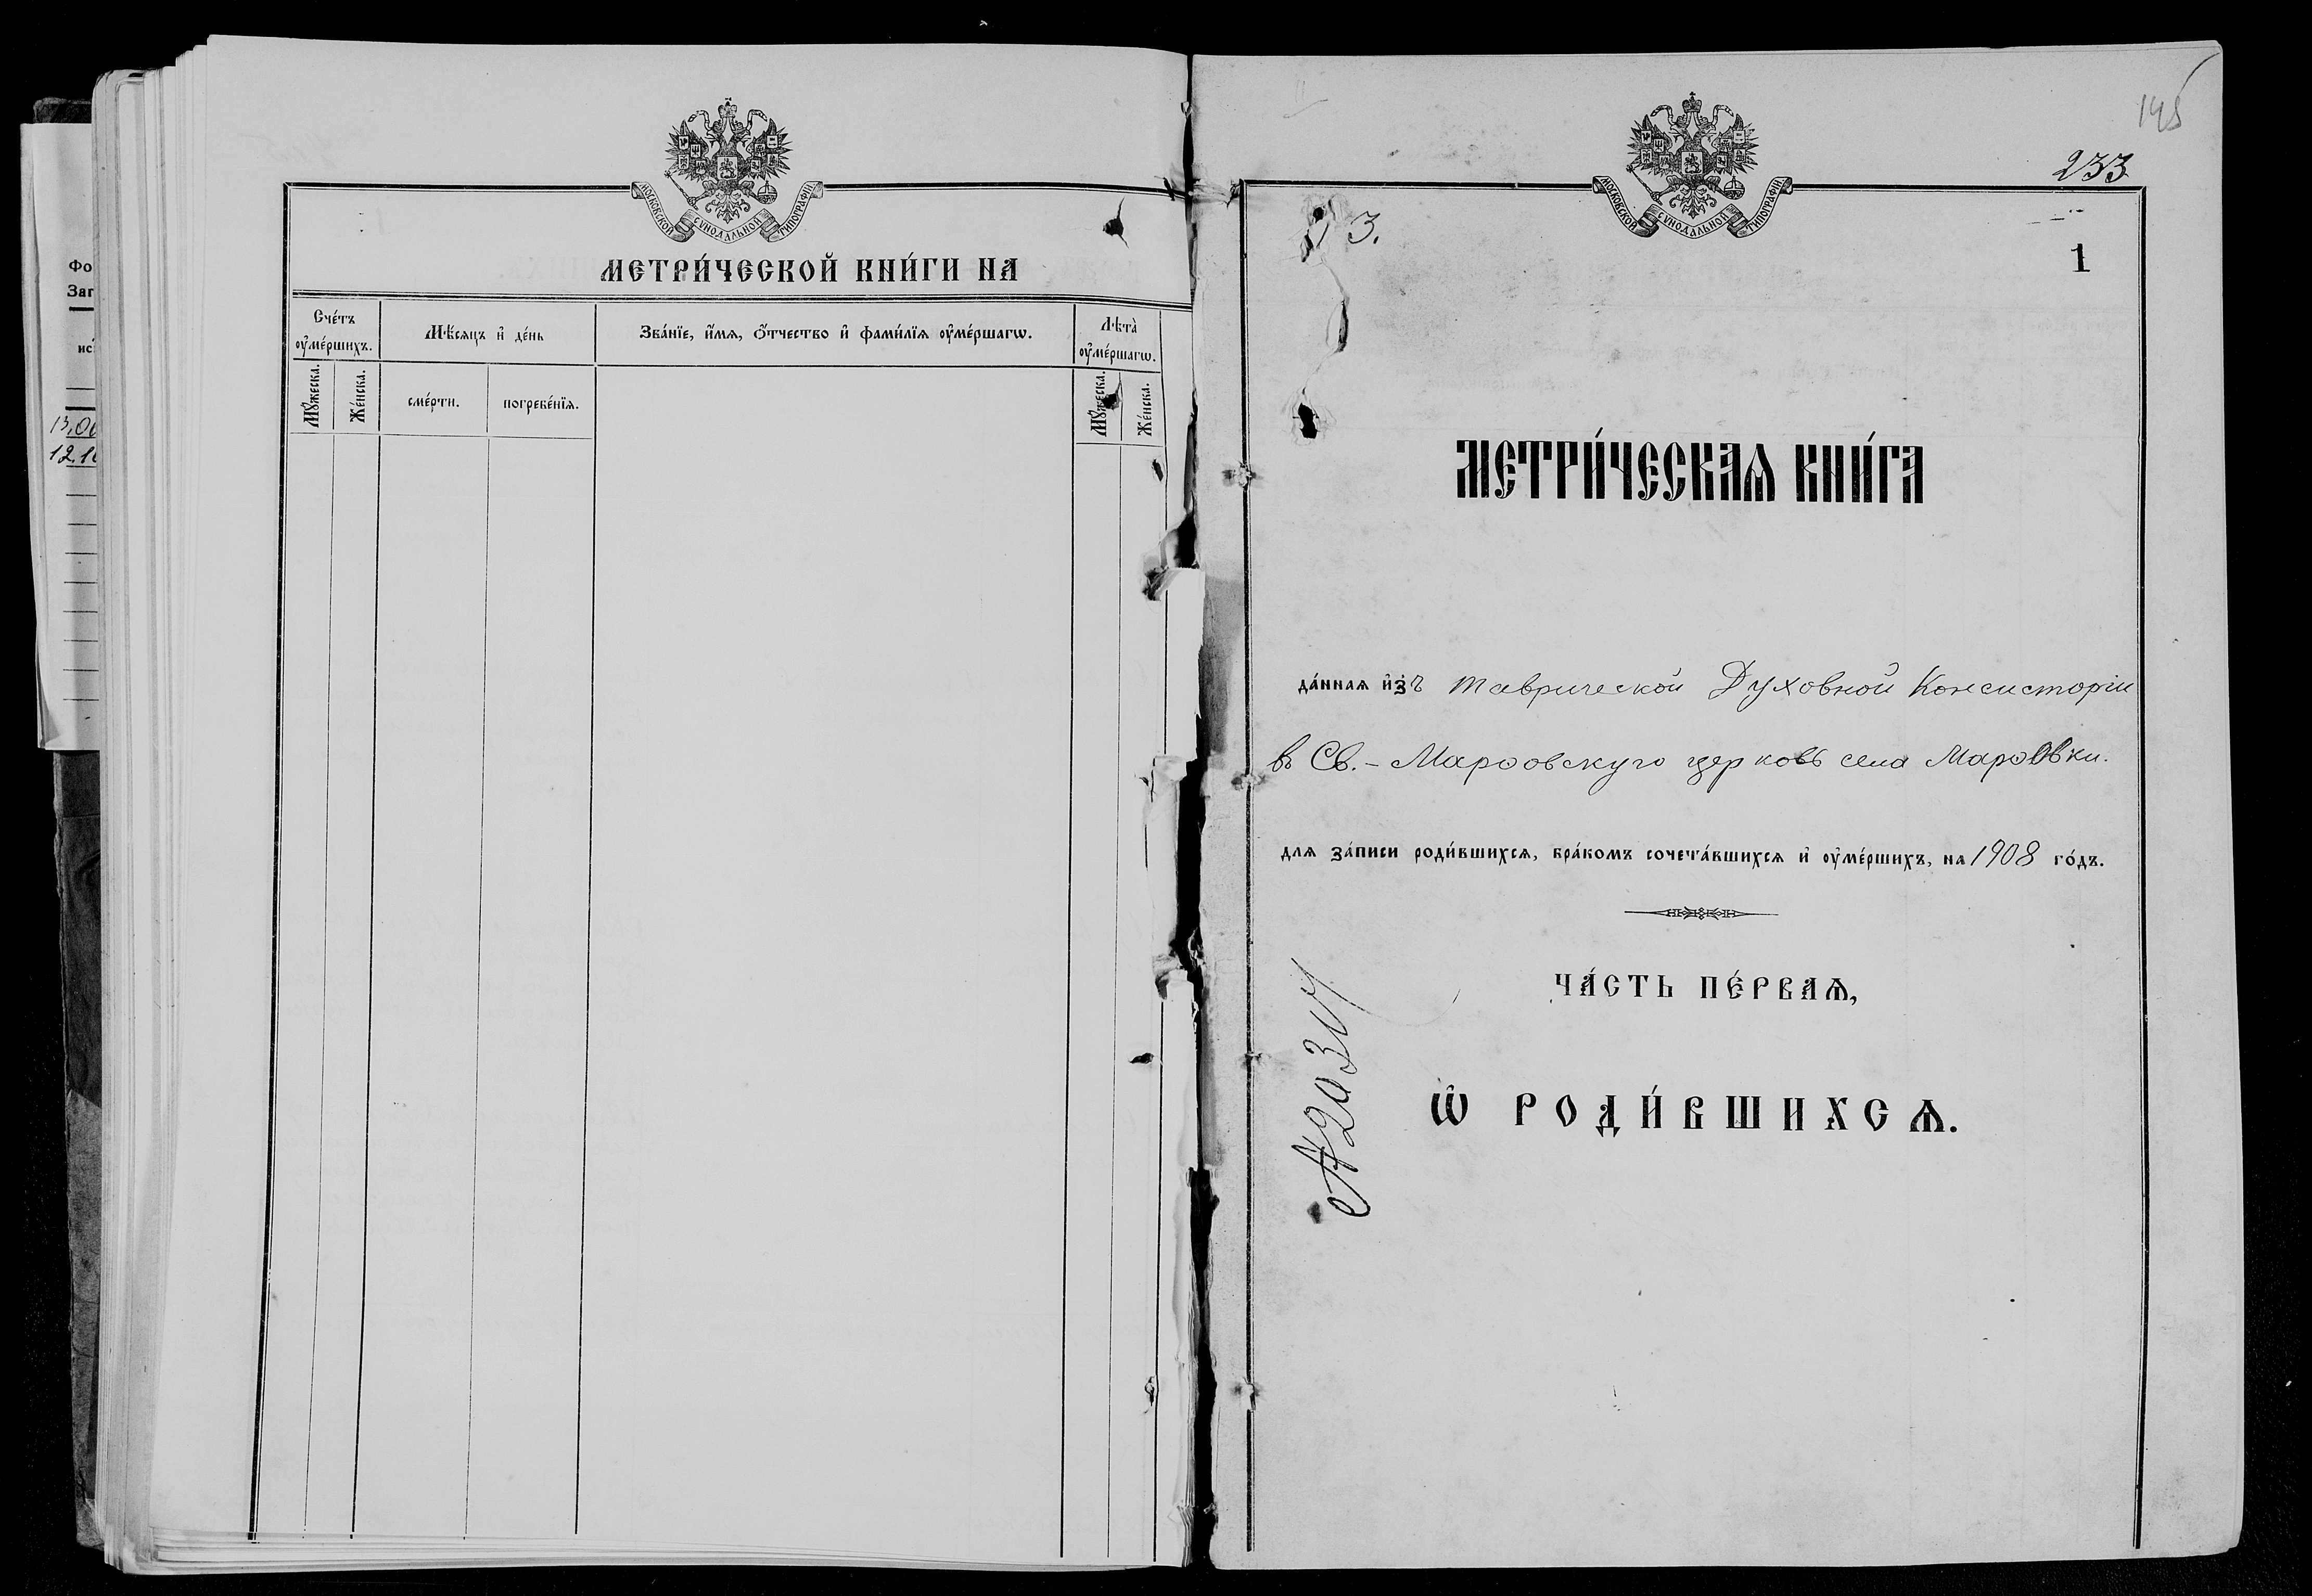 МОСКОВСКОЙ СѴНОДАЛЬНОЙ ТИПОГРАФІИ
МЕТРИ́ЧЕСКОЙ КНИ́ГИ НА
Сче́тъ оу҆ме́ршихъ.
Мѣ́сяцъ и҆ де́нь
Зва́нїе, и҆́мѧ, ѻ҆́тчество и҆ фами́лїѧ оу҆ме́ршагѡ.
Лѣта̀ оу҆ме́ршагѡ.
Мꙋ́жеска.
Же́нска.
сме́рти.
погребе́нїѧ.
Мꙋ́жеска.
Же́нска.
Фо
Заг
ис
13,0
12.1
145
233
МОСКОВСКОЙ СѴНОДАЛЬНОЙ ТИПОГРАФІИ
3.
1
МЕТРИ́ЧЕСКАѦ КНИ́ГА
да́ннаѧ и҆зъ Таврической Духовной Консисторіи
въ Св.-Марѳовскую церковь села Марѳовки.
длѧ за́писи роди́вшихсѧ, бра́комъ сочета́вшихсѧ и҆ оу҆ме́ршихъ, на 1908 го́дъ.
ЧА́СТЬ ПЕ́РВАѦ,
Ѡ҆ РОДИ́ВШИХСѦ.